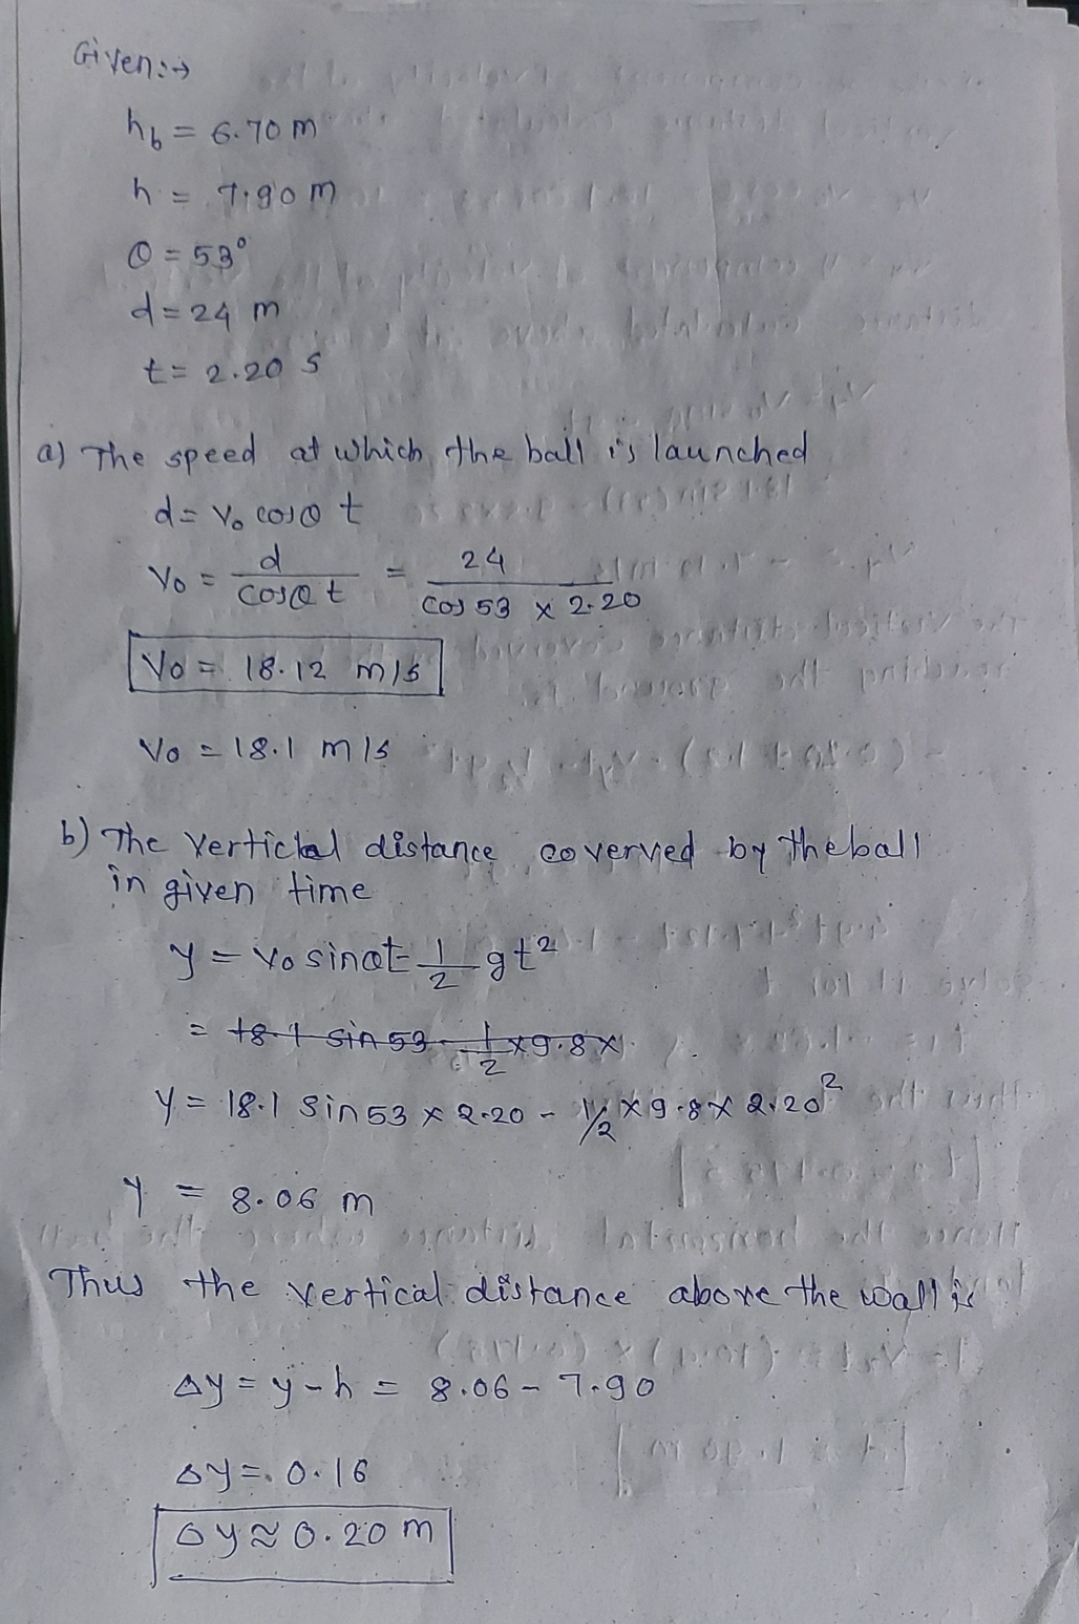 Given:→
h_b = 6.70 m
h = 7.90 m
θ = 53°
d = 24 m
t = 2.20 s
a) The speed at which the ball is launched
d = V₀ cosθ t
V₀ = d / cosθ t = 24 / cos 53 x 2.20
V₀ = 18.12 m/s
V₀ = 18.1 m/s
b) The Vertictal distance coverved by the ball
in given time
y = V₀ sinθt - 1/2 gt²
= 18.1 sin 53 - 1/2 x 9.8 x
y = 18.1 sin 53 x 2.20 - 1/2 x 9.8 x 2.20²
y = 8.06 m
Thus the vertical distance above the wall is
Δy = y - h = 8.06 - 7.90
Δy = 0.16
Δy ≈ 0.20 m